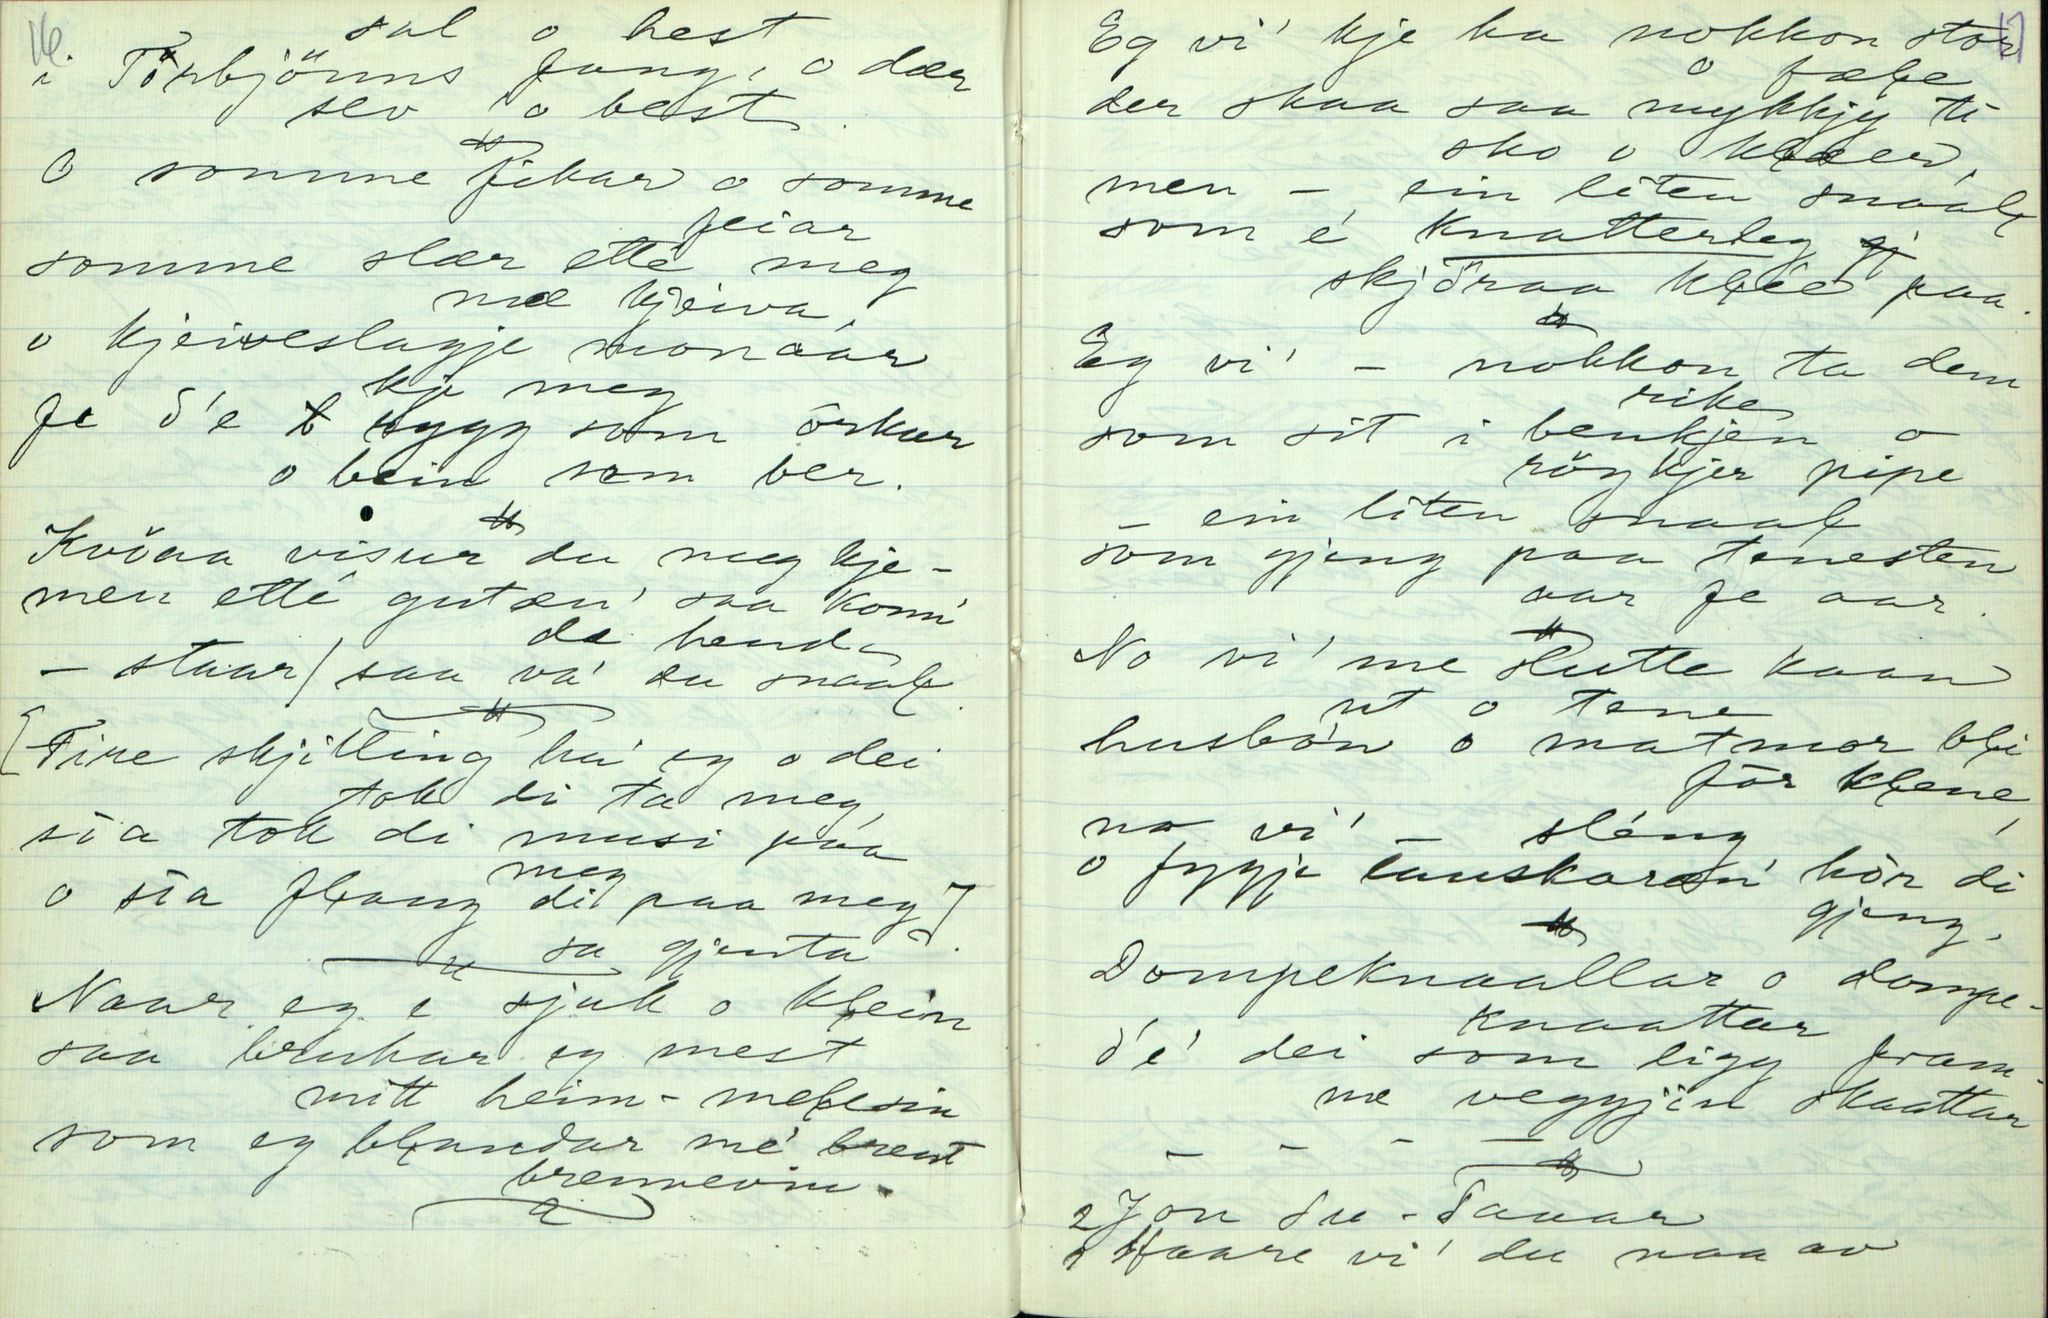 16.
sal o hest
i Törbjönns fang, o dær
sev o best.
O somme fikar o somme
feiar
somme slær ette meg
mæ kjeiva,
o kjeiveslagje monáar
kje meg
fe d'e rygg som orkar
o bein som ber.
Kvöaa visur du meg kje -
men etté gutæn' saa kom'
de hend.
- staar / saa va' du snaal.
[Fire skjilling ha' eg o dei
tok di ta meg,
sia tok di musi páa
meg
o sia flaug di paa meg]
sa gjenta.
Naar eg e sjuk o klein
saa brukar eg mest
mitt heim-melesin
som eg blandar me' brent
brennevin.
17
Eg vi' kje ha nokkon stor
o fæle
der skaa saa mykkjy ti
sko o klæer,
men - ein liten snáal
som é knatterleg
skjöraa klée paa.
Eg vi' - nokkon ta dem
rike
som sit i benkjen o
röykjer pipe
- ein liten snaal
som gjeng paa tenesten
aar fe aar.
No vi' me slutte kaan
ut o tene
husbón o matmor bli
för klene,
no vi' - sléng
o fygje lauskaræn' hór di
gjeng.
Dompeknaallar o dompe-
knaattar
d'é dei som ligg fram-
me veggjin skaattar
- - - -
2 Jon Su-Sauar
1 Haare vi' du naa av